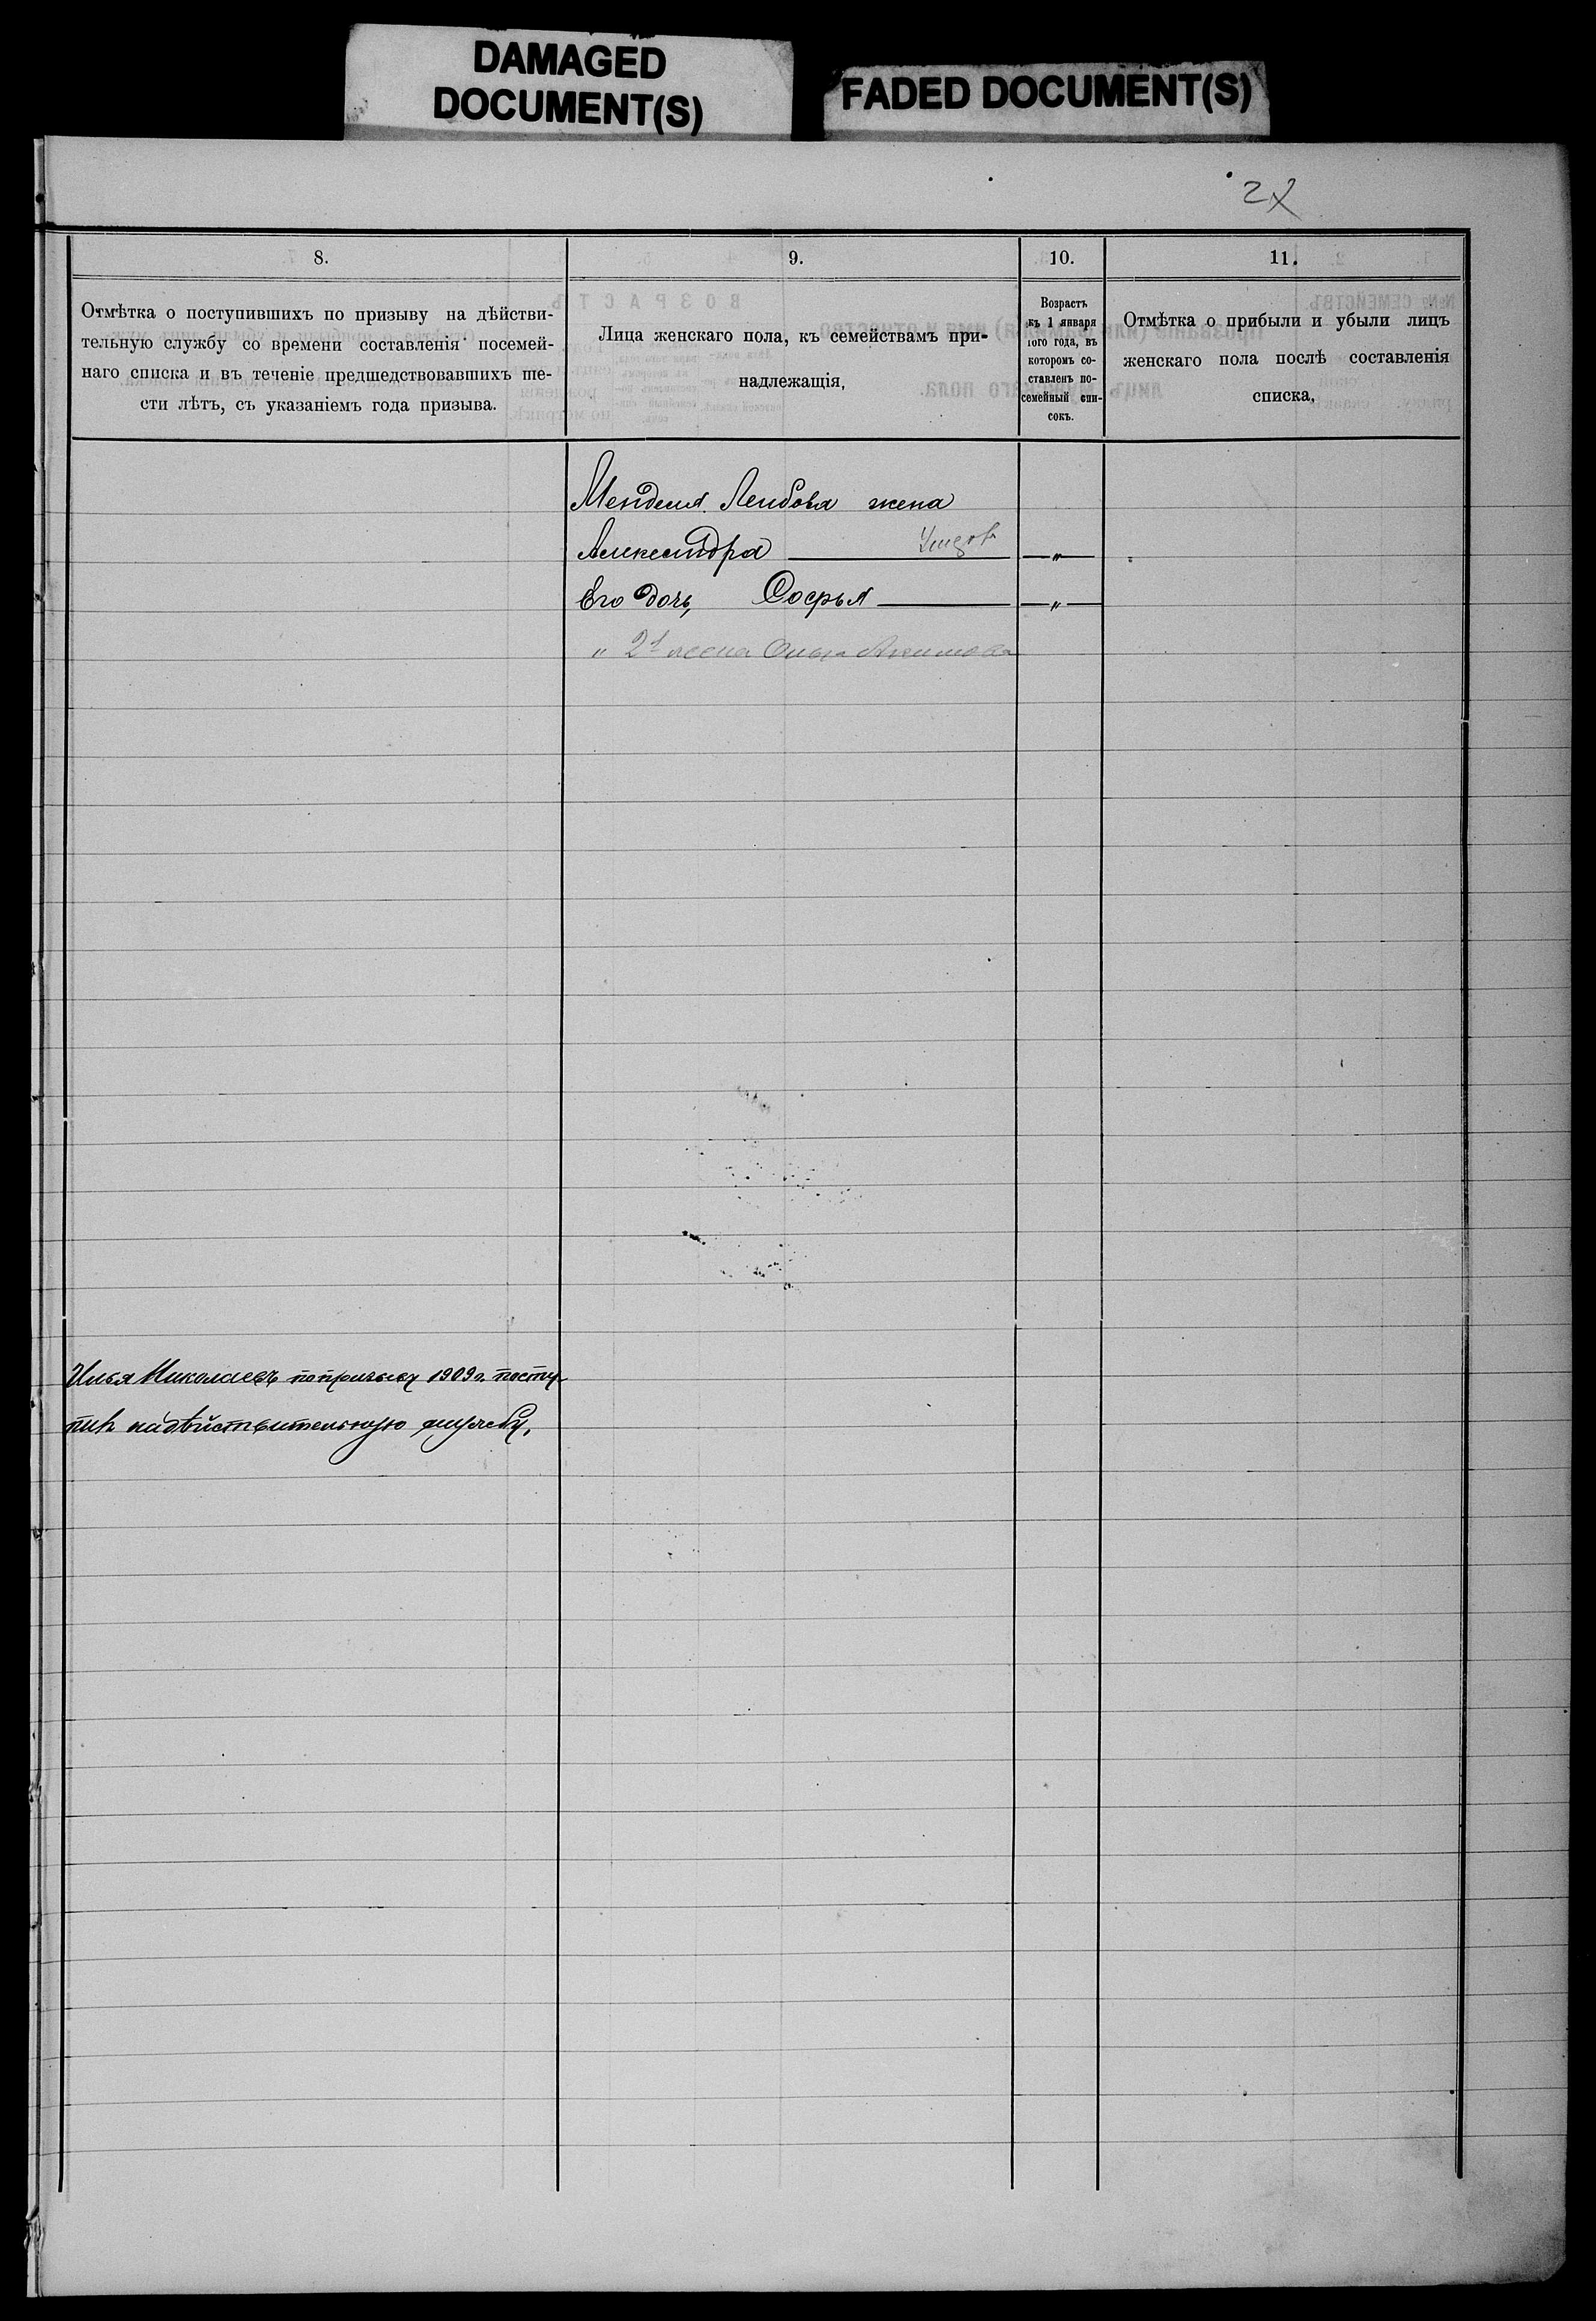 DAMAGED
DOCUMENT(S)
FADED DOCUMENT(S)
8.
9.
10.
11.
Отмѣтка о поступившихъ по призыву на дѣйстви-
тельную службу со времени составленія посемей-
наго списка и въ теченіе предшедствовавшихъ ше-
сти лѣтъ, съ указаніемъ года призыва.
Лица женскаго пола, къ семействамъ при-
надлежащія,
Возрастъ
къ 1 января
того года, въ
которомъ со-
ставленъ по-
семейный спи-
сокъ.
Отмѣтка о прибыли и убыли лицъ
женскаго пола послѣ составленія
списка,
Менделя Лейбова жена
Александра
Его дочь, Софья
" 2я жена Ольга Акимова
Илья Николаевъ по призыву 1909 г. посту-
пилъ на дѣйствительную службу,